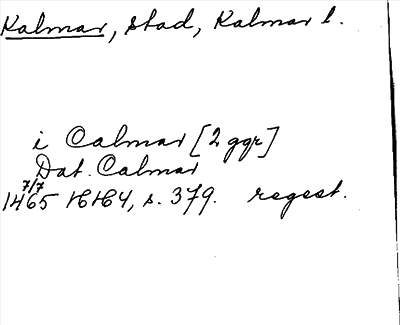 Kalmar, stad, Kalmar l.
i Calmar [2 ggr]
Dat. Calmar
7/7
1465 HH4, s. 379. regest.